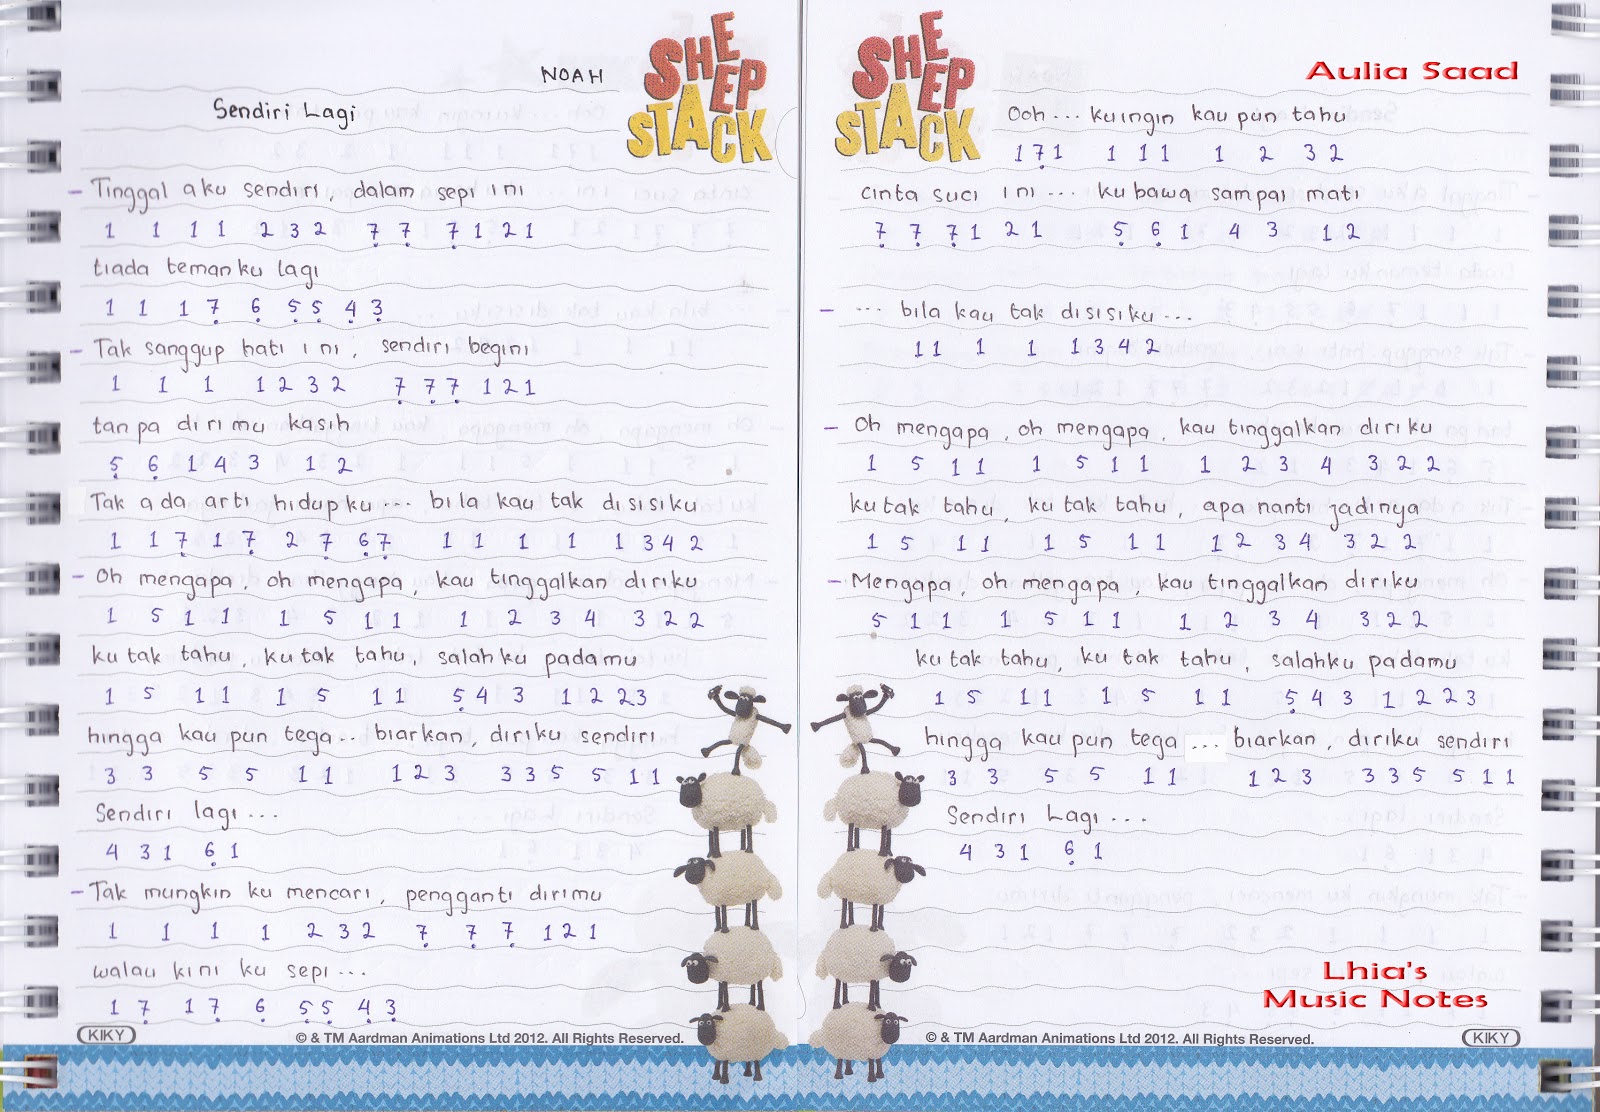 NOAH
SHEEP STACK
Sendiri Lagi
- Tinggal aku sendiri, dalam sepi ini
1 1 1 1 2 3 2 7̣ 7̣ 7̣ 1 2 1
tiada temanku lagi
1 1 1 7̣ 6̣ 5̣ 5̣ 4̣ 3̣
- Tak sanggup hati ini, sendiri begini
1 1 1 1 2 3 2 7̣ 7̣ 7̣ 1 2 1
tanpa dirimu kasih
5̣ 6̣ 1 4 3 1 2
Tak ada arti hidupku... bila kau tak disisiku
1 1 7̣ 1 7̣ 2 7̣ 6̣ 7̣ 1 1 1 1 1 3 4 2
- Oh mengapa, oh mengapa, kau tinggalkan diriku
1 5 1 1 1 5 1 1 1 2 3 4 3 2 2
ku tak tahu, ku tak tahu, salahku padamu
1 5 1 1 1 5 1 1 5̣ 4 3 1 2 2 3
hingga kau pun tega.. biarkan, diriku sendiri
3 3 5 5 1 1 1 2 3 3 3 5 5 1 1
Sendiri lagi...
4 3 1 6̣ 1
- Tak mungkin ku mencari, pengganti dirimu
1 1 1 1 2 3 2 7̣ 7̣ 7̣ 1 2 1
walau kini ku sepi...
1 7̣ 1 7̣ 6̣ 5̣ 5̣ 4̣ 3̣
KIKY
© & TM Aardman Animations Ltd 2012. All Rights Reserved.
SHEEP STACK
Aulia Saad
Ooh... kuingin kau pun tahu
1 7̣ 1 1 1 1 1 2 3 2
cinta suci ini... ku bawa sampai mati
7̣ 7̣ 7̣ 1 2 1 5̣ 6̣ 1 4 3 1 2
- ... bila kau tak disisiku...
1 1 1 1 1 3 4 2
- Oh mengapa, oh mengapa, kau tinggalkan diriku
1 5 1 1 1 5 1 1 1 2 3 4 3 2 2
ku tak tahu, ku tak tahu, apa nanti jadinya
1 5 1 1 1 5 1 1 1 2 3 4 3 2 2
- Mengapa, oh mengapa, kau tinggalkan diriku
5 1 1 1 5 1 1 1 2 3 4 3 2 2
ku tak tahu, ku tak tahu, salahku padamu
1 5 1 1 1 5 1 1 5̣ 4 3 1 2 2 3
hingga kau pun tega ... biarkan, diriku sendiri
3 3 5 5 1 1 1 2 3 3 3 5 5 1 1
Sendiri Lagi...
4 3 1 6̣ 1
Lhia's
Music Notes
© & TM Aardman Animations Ltd 2012. All Rights Reserved.
KIKY